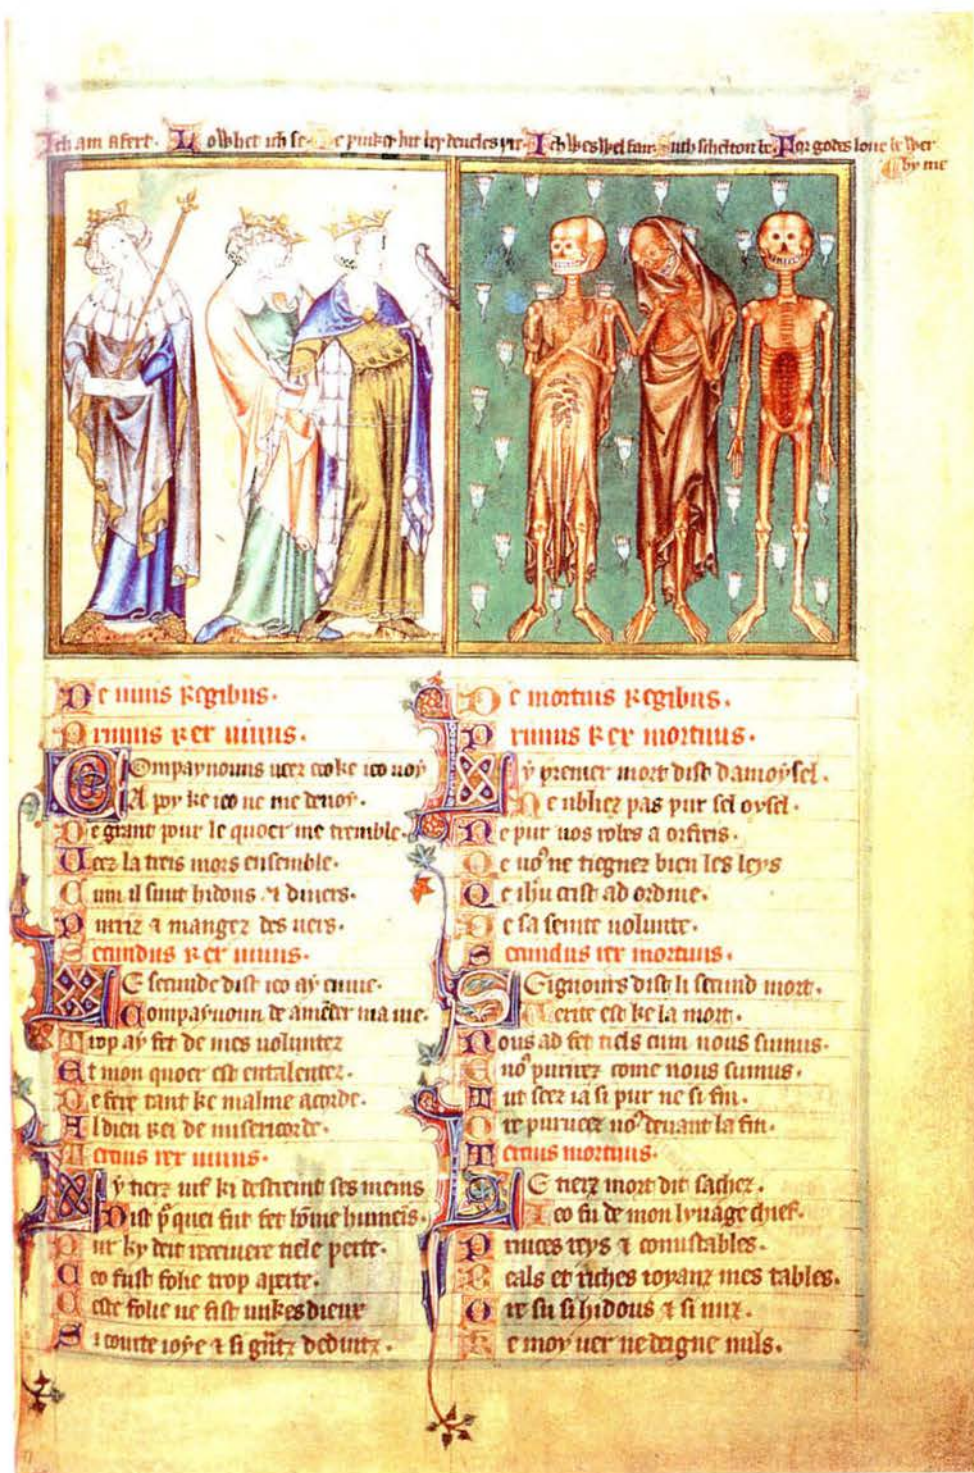 Ich am afert. Lo whet ich se. Me þinkes hit bey deueles þre. Ich wes wel fair. Such scheltou be. For godes loue be wer
by me
De uiuis regibus.
Primus rex uiuus.
Compaynouns ueez ceo ke ieo uoy
A poy ke ieo ne me deuoy.
De grant pour le quoer me tremble.
Veez la treis mors ensemble.
Cum il sunt hidous & diuers.
Purriz & mangez des uers.
Secundus rex uiuus.
Le secunde dist ieo ay enuie.
Compaynoun de amender ma uie.
Trop ay fet de mes uoluntez
Et mon quoer est entalentez.
De fere tant ke malme acorde.
Al dieu rei de misericorde.
Tercius rex uiuus.
Ly tierz uif ki destreint ses meins
Dist p quei fut fet home humeis.
Put ky deit receiuere tiele perte.
Ceo fust folie trop aperte.
Ceste folie ne fist unkes dieux
Si courte ioye & si gntz deduitz.
De mortuis regibus.
Primus rex mortuus.
Ly premer mort dist damoysel.
Ne ubliez pas pur sel oysel.
Ne pur uos robes a orfreis.
Qe uos ne tiegnez bien les leys
Qe ihu crist ad ordine.
De sa seinte uolunte.
Secundus rex mortuus.
Signours dist li secund mort.
Verite est ke la mort.
Nous ad fet tiels cum nous sumus.
Et uos purrirez come nous sumus.
Tut seez ia si pur ne si fin.
Ore purueez uos deuant la fin.
Tercius mortuus.
Le tierz mort dit sachez.
Ieo fu de mon lynage chief.
Princes reys & conustables.
Beals et riches ioyanz mes tables.
Ore su si hidous & si nuz.
Ke moy uer ne deigne nuls.